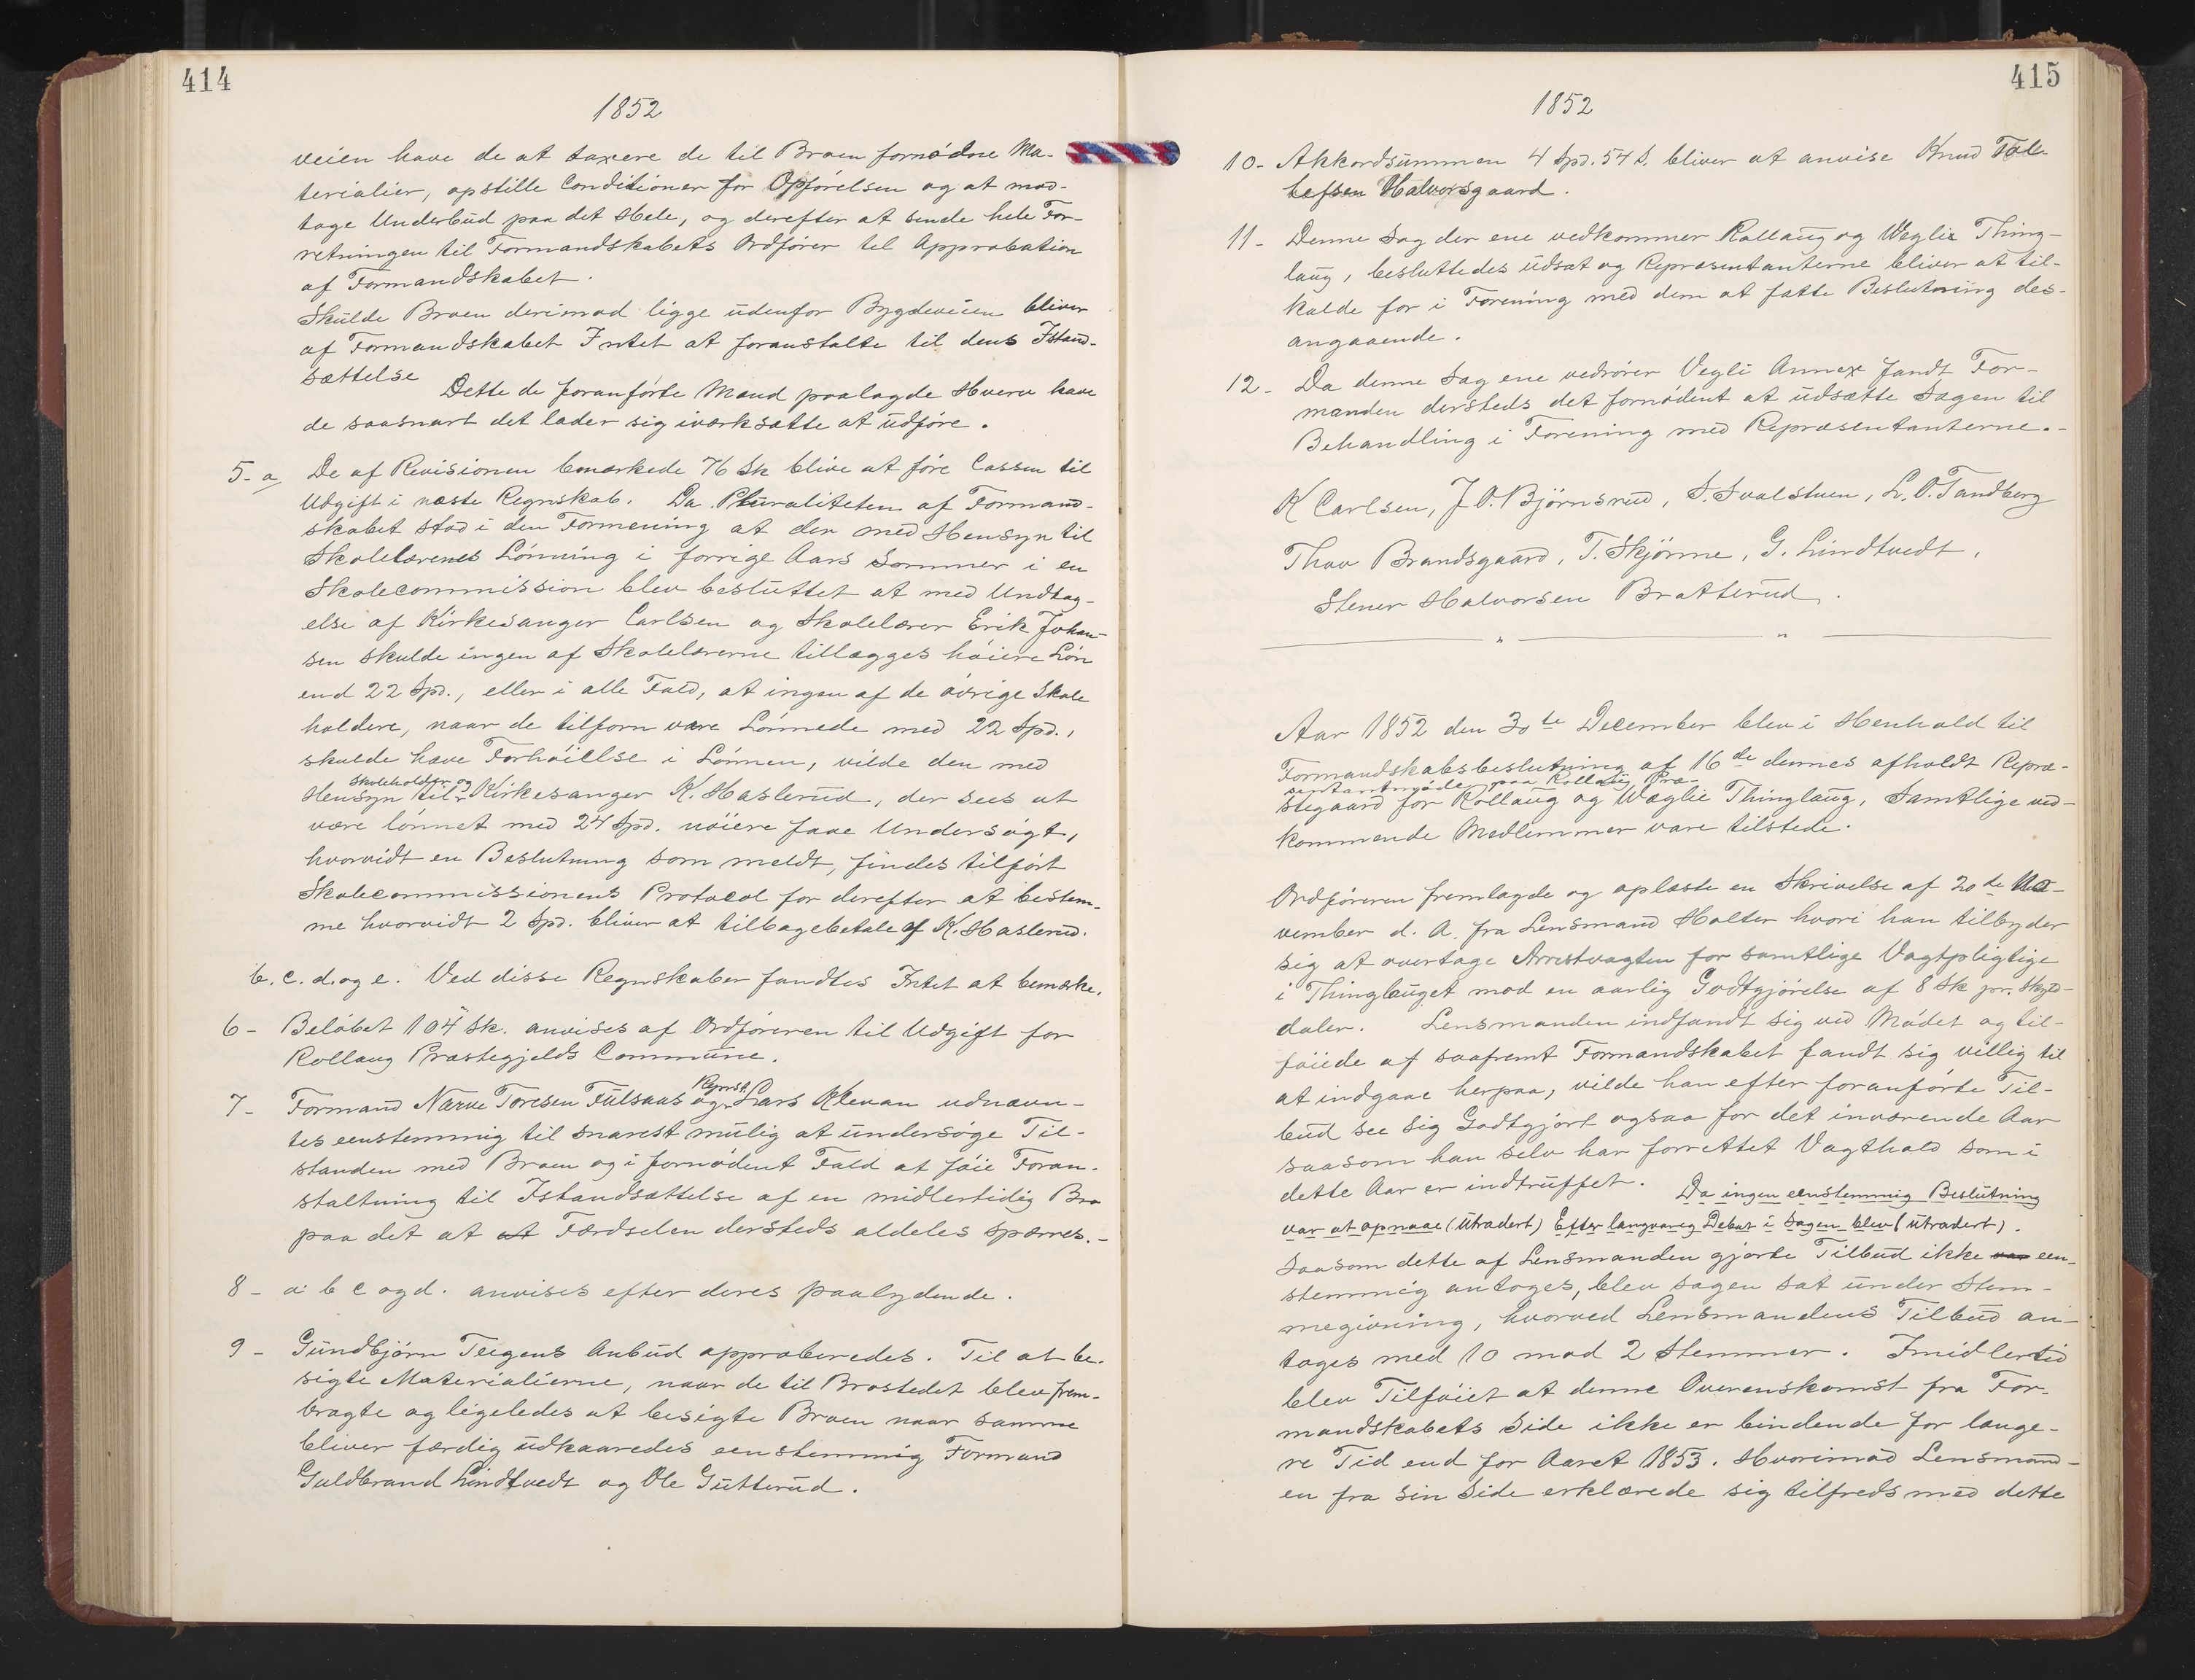 414
1852
veien have de at taxere de til Broen fornødne Ma-
terialier, opstille Conditioner for Opførelsen og at mod-
tage Underbud paa det Hele, og derefter at sende hele For-
retningen til Formandskabets Ordfører til Approbation
af Formandskabet.
Skulde Broen derimod ligge udenfor Bygdeveien bliver
af Formandskabet Intet at foranstalte til dens Istand-
sættelse
Dette de foranførte Mænd paalagde Hverv have
de saasnart det lader sig iværksætte at udføre.
5- a, De af Revisionen bemærkede 76 Sk blive at føre Cassen til
Udgift i næste Regnskab. Da Pluraliteten af Formand-
skabet stod i den Formening at der med Hensyn til
Skolelærenes Lønning i forrige Aars Sommer i en
Skolecommission blev besluttet at med Undtag-
else af Kirkesanger Carlsen og Skolelærer Erik Johan-
sen skulde ingen af Skolelærerne tillægges høiere Løn
end 22 Spd., eller i alle Fald, at ingen af de øvrige Skole
holdere, naar de tilforn vare Lønnede med 22 Spd.,
skulde have Forhøillse i Lønnen, vilde den med
Skoleholder og
Hensyn til Kirkesanger K. Haslerud, der sees at
være lønnet med 24 Spd. nøiere faae Undersøgt,
hvorvidt en Beslutning som meldt, findes tilført
Skolecommissionens Protocol for derefter at bestem-
me hvorvidt 2 Spd. bliver at tilbagebetale af K. Haslerud.
b. c. d. og e. Ved disse Regnskaber fandtes Intet at bemærke.
6 - Beløbet 104 Sk. anvises af Ordføreren til Udgift for
Rollaug Præstegjelds Commune.
Repræst.
7 - Formand Narve Toresen Fulsaas og Lars Klevan udnævn-
tes eenstemmig til snarest mulig at undersøge Til-
standen med Broen og i fornødent Fald at føie Foran-
staltning til Istandsættelse af en midlertidig Bro
paa det at at Færdselen dersteds aldeles spærres.-
8 - a b c og d. anvises efter deres paalydende.
9 - Gundbjørn Teigens Anbud approberedes. Til at be-
sigte Materialierne, naar de til Brostedet blev frem-
bragte og ligeledes at besigte Broen naar samme
bliver færdig udkaaredes eenstemmig Formand
Guldbrand Lindtvedt og Ole Gutterud.
415
1852
10- Akkordsummen 4 Spd. 54 s. bliver at anvise Knud Tol-
lefsen Halvorsgaard.
11 - Denne Sag der ene vedkommer Rollaug og Weglie Thing-
laug, besluttedes udsat og Repræsentanterne bliver at til-
kalde for i Forening med dem at fatte Beslutning des-
angaaende.
12 - Da denne Sag ene vedrører Vegli Annex fandt For-
manden dersteds det fornødent at udsætte Sagen til
Behandling i Forening med Repræsentanterne.-
K Carlsen, J. O. Bjørnsrud, S. Svalstuen, L. O. Tandberg
Thov Brandsgaard, T. Skjønne, G. Lindtvedt,
Stener Halvorsen Bratterud.
Aar 1852 den 30te December blev i Henhold til
Formandskabsbeslutning af 16de dennes afholdt Repræ-
sentantmøde paa Rollaug Præ-
stegaard for Rollaug og Wæglie Thinglaug, Samtlige ved-
kommende Medlemmer vare tilstede.
Ordføreren fremlagde og oplæste en Skrivelse af 20de No-
vember d. A. fra Lensmand Holter hvori han tilbyder
sig at overtage Arrestvagten for samtlige Vagtpligtige
i Thinglauget mod en aarlig Godtgjørelse af 8 Sk pr. Skyld-
daler. Lensmanden indfandt sig ved Mødet og til-
føiede af saafremt Formandskabet fandt sig villig til
at indgaae herpaa, vilde han efter foranførte Til-
bud see sig Godtgjort ogsaa for det inværende Aar
saasom han selv har forrettet Vagthold som i
dette Aar er indtruffet. Da ingen eenstemmig Beslutning
var at opnaae (utradert) Efter langvarig Debat i Sagen blev (utradert).
Saasom dette af Lensmanden gjorte Tilbud ikke var een-
stemmig antoges, blev Sagen sat under Stem-
megivning, hvorved Lensmandens Tilbud an-
toges med 10 mod 2 Stemmer. Imidlertid
blev Tilføiet at denne Overenskomst fra For-
mandskabets Side ikke er bindende for længe-
re Tid end for Aaret 1853. Hvorimod Lensmand-
en fra sin Side erklærede sig tilfreds med dette